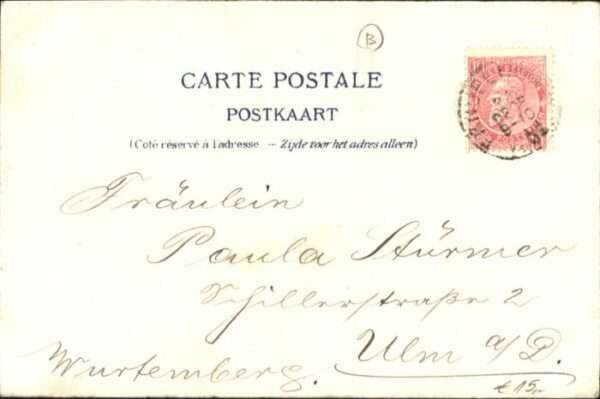 B
CARTE POSTALE
POSTKAART
(Coté réservé à l'adresse. – Zijde voor het adres alleen)
Fräulein
Paula Stürmer
Schillerstraße 2
Ulm a/D.
Wurtemberg.
€ 15,-